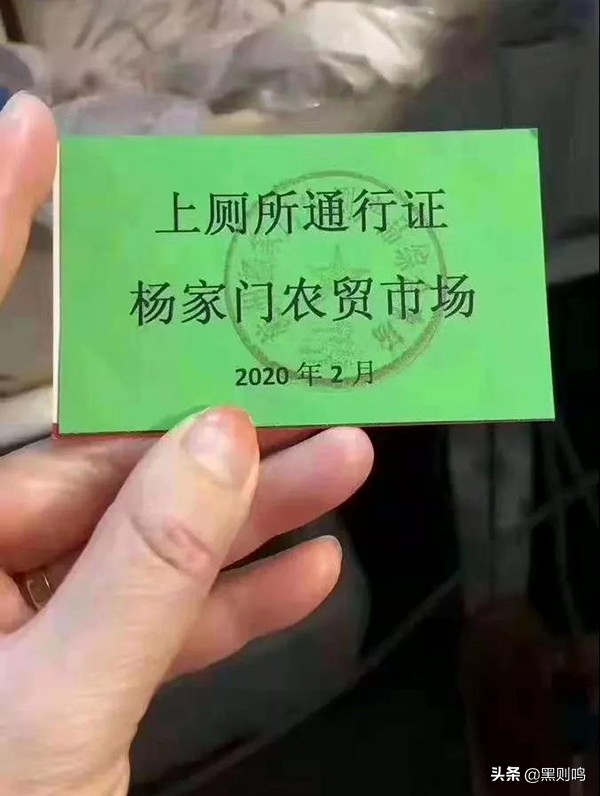 上厕所通行证
杨家门农贸市场
2020年2月
头条 @黑则鸣